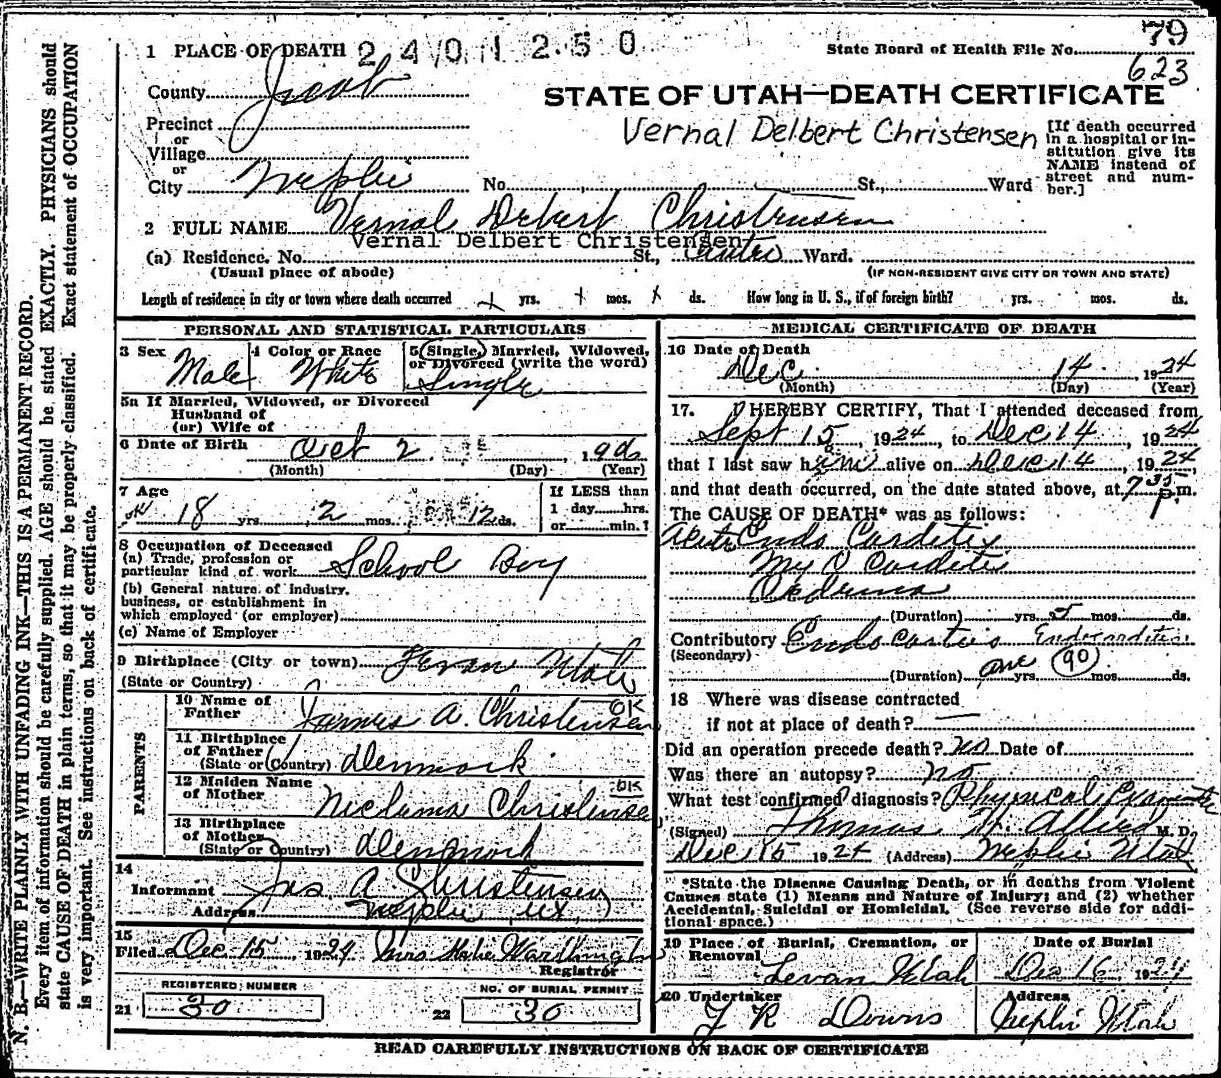 79
1 PLACE OF DEATH 2401250 State Board of Health File No.
623
County Juab
STATE OF UTAH—DEATH CERTIFICATE
Precinct
or
Village
Vernal Delbert Christensen
[If death occurred in a hospital or institution give its NAME instead of street and number.]
or
City Nephi No. St., Ward
2 FULL NAME Vernal Delbert Christensen
Vernal Delbert Christensen
(a) Residence. No. St., Ward.
(Usual place of abode) (IF NON-RESIDENT GIVE CITY OR TOWN AND STATE)
Length of residence in city or town where death occurred yrs. mos. ds. How long in U. S., if of foreign birth? yrs. mos. ds.
PERSONAL AND STATISTICAL PARTICULARS
3 Sex Male
4 Color or Race White
5 Single, Married, Widowed,
or Divorced (write the word)
Single
5a If Married, Widowed, or Divorced
Husband of
(or) Wife of
6 Date of Birth Oct 2 190
(Month) (Day) (Year)
7 Age
18 yrs. 2 mos. 12 ds.
If LESS than
1 day hrs.
or min.?
8 Occupation of Deceased
(a) Trade, profession or
particular kind of work School Boy
(b) General nature of industry,
business, or establishment in
which employed (or employer)
(c) Name of Employer
9 Birthplace (City or town) Levan Utah
(State or Country)
PARENTS
10 Name of
Father James A. Christensen OK
11 Birthplace
of Father
(State or Country) Denmark
12 Maiden Name
of Mother Christensen OK
13 Birthplace
of Mother
(State or Country) Denmark
14
Informant Jas A Christensen
Address Nephi Ut
15
Filed Dec 15 1924 Mrs
Registrar
REGISTERED NUMBER
21 30
NO. OF BURIAL PERMIT
22 30
MEDICAL CERTIFICATE OF DEATH
16 Date of Death
Dec 14, 1924
(Month) (Day) (Year)
17. I HEREBY CERTIFY, That I attended deceased from
Sept 15, 1924, to Dec 14, 1924
that I last saw him alive on Dec 14, 1924,
and that death occurred, on the date stated above, at 7 35 p.m.
The CAUSE OF DEATH* was as follows:
Acute Endo Carditis
Myo Carditis
Oedema
(Duration) yrs. 5 mos. ds.
Contributory Endocarditis Endocarditis
(Secondary)
(Duration) one yrs. 90 mos. ds.
18 Where was disease contracted
if not at place of death?
Did an operation precede death? no Date of
Was there an autopsy? no
What test confirmed diagnosis? Physical
(Signed) Thomas M. D.
Dec 15 1924 (Address) Nephi Utah
*State the Disease Causing Death, or in deaths from Violent
Causes state (1) Means and Nature of Injury; and (2) whether
Accidental, Suicidal or Homicidal. (See reverse side for additional space.)
19 Place of Burial, Cremation, or
Removal
Levan Utah
Date of Burial
Dec 16 1924
20 Undertaker
Downs
Address
Nephi Utah
READ CAREFULLY INSTRUCTIONS ON BACK OF CERTIFICATE
N. B.—WRITE PLAINLY WITH UNFADING INK—THIS IS A PERMANENT RECORD.
Every item of information should be carefully supplied. AGE should be stated EXACTLY. PHYSICIANS should
state CAUSE OF DEATH in plain terms, so that it may be properly classified. Exact statement of OCCUPATION
is very important. See instructions on back of certificate.